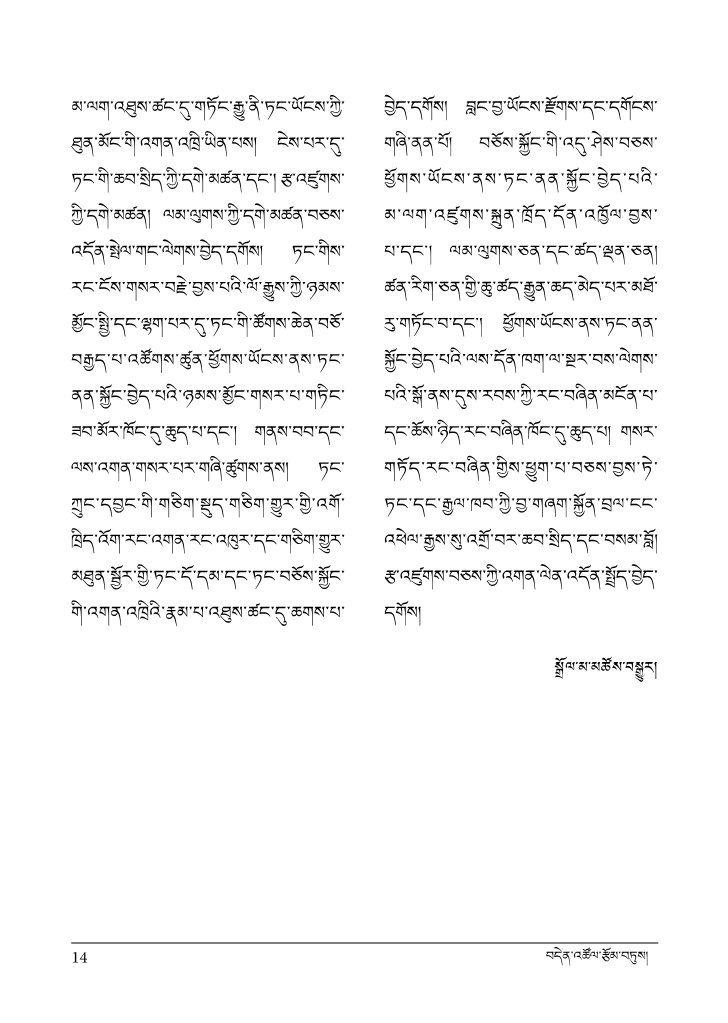 མ་ལག་འཐུས་ཚང་དུ་གཏོང་རྒྱུ་ནི་ཏང་ཡོངས་ཀྱི་
ཐུན་མོང་གི་འགན་འཁྲི་ཡིན་པས། ངེས་པར་དུ་
ཏང་གི་ཆབ་སྲིད་ཀྱི་དགེ་མཚན་དང་། རྩ་འཛུགས་
ཀྱི་དགེ་མཚན། ལམ་ལུགས་ཀྱི་དགེ་མཚན་བཅས་
འདོན་སྤེལ་གང་ལེགས་བྱེད་དགོས། ཏང་གིས་
རང་ངོས་གསར་བརྗེ་བྱས་པའི་ལོ་རྒྱུས་ཀྱི་ཉམས་
མྱོང་སྤྱི་དང་ལྷག་པར་དུ་ཏང་གི་ཚོགས་ཆེན་བཅོ་
བརྒྱད་པ་འཚོགས་ཚུན་ཕྱོགས་ཡོངས་ནས་ཏང་
ནན་སྐྱོང་བྱེད་པའི་ཉམས་མྱོང་གསར་པ་གཏིང་
ཟབ་མོར་ཁོང་དུ་ཆུད་པ་དང་། གནས་བབ་དང་
ལས་འགན་གསར་པར་གཞི་ཚུགས་ནས། ཏང་
ཀྲུང་དབྱང་གི་གཅིག་སྡུད་གཅིག་གྱུར་གྱི་འགོ་
ཁྲིད་འོག་རང་འགན་རང་འཁུར་དང་གཅིག་གྱུར་
མཐུན་སྦྱོར་གྱི་ཏང་དོ་དམ་དང་ཏང་བཅོས་སྐྱོང་
གི་འགན་འཁྲིའི་རྣམ་པ་འཐུས་ཚང་དུ་ཆགས་པ་
བྱེད་དགོས། བླང་བྱ་ཡོངས་རྫོགས་དང་དགོངས་
གཞི་ནན་པོ། བཅོས་སྐྱོང་གི་འདུ་ཤེས་བཅས་
ཕྱོགས་ཡོངས་ནས་ཏང་ནན་སྐྱོང་བྱེད་པའི་
མ་ལག་འཛུགས་སྐྲུན་ཁྲོད་དོན་འཁྱོལ་བྱས་
པ་དང་། ལམ་ལུགས་ཅན་དང་ཚད་ལྡན་ཅན།
ཚན་རིག་ཅན་གྱི་ཆུ་ཚད་རྒྱུན་ཆད་མེད་པར་མཐོ་
རུ་གཏོང་བ་དང་། ཕྱོགས་ཡོངས་ནས་ཏང་ནན་
སྐྱོང་བྱེད་པའི་ལས་དོན་ཁག་ལ་སྔར་བས་ལེགས་
པའི་སྒོ་ནས་དུས་རབས་ཀྱི་རང་བཞིན་མངོན་པ་
དང་ཆོས་ཉིད་རང་བཞིན་ཁོང་དུ་ཆུད་པ། གསར་
གཏོད་རང་བཞིན་གྱིས་ཕྱུག་པ་བཅས་བྱས་ཏེ་
ཏང་དང་རྒྱལ་ཁབ་ཀྱི་བྱ་གཞག་སྐྱོན་བྲལ་ངང་
འཕེལ་རྒྱས་སུ་འགྲོ་བར་ཆབ་སྲིད་དང་བསམ་བློ།
རྩ་འཛུགས་བཅས་ཀྱི་འགན་ལེན་འདོན་སྤྲོད་བྱེད་
དགོས།
སྒྲོལ་མ་མཚོས་བསྒྱུར།
14
བདེན་འཚོལ་རྩོམ་བཏུས།